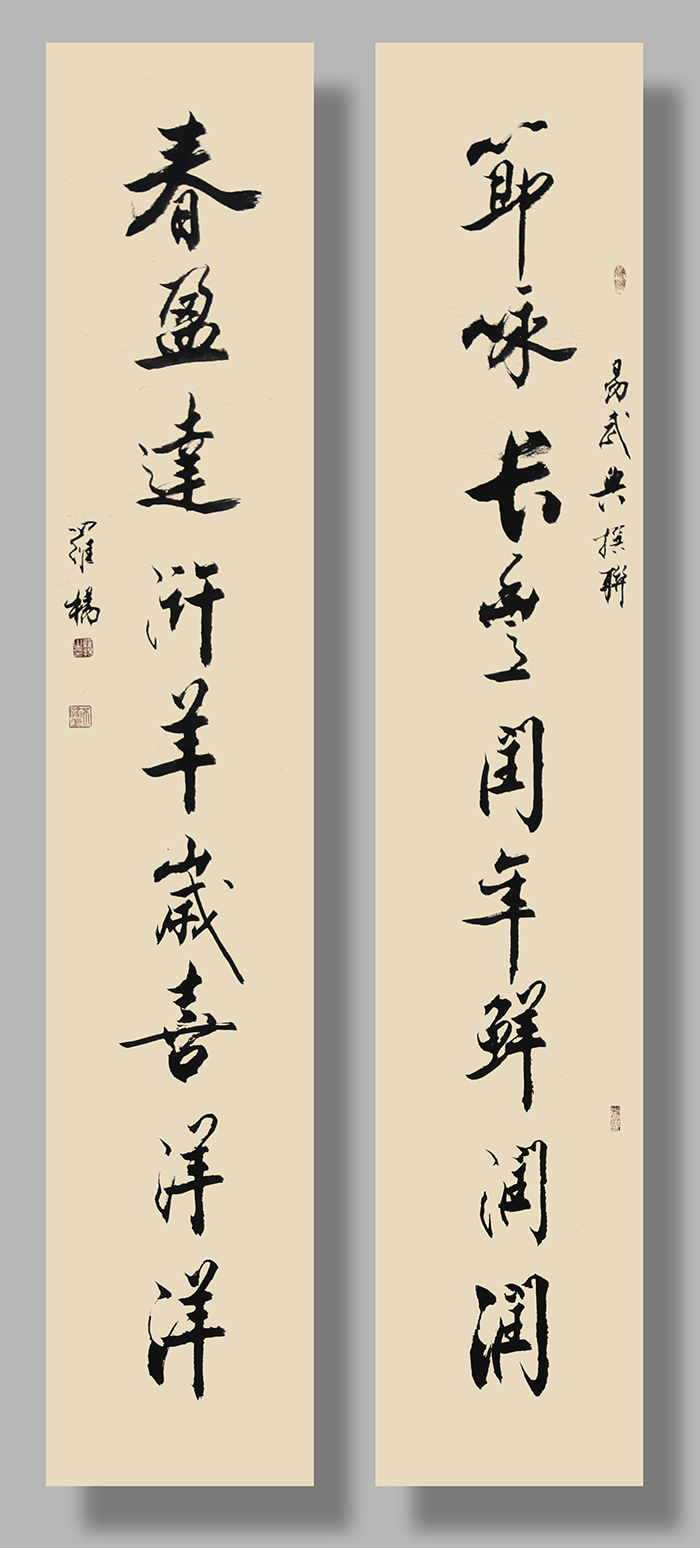 易武典撰聯
節咏长豐閏年鮮潤潤
春盈達浒羊歲喜洋洋
羅楊